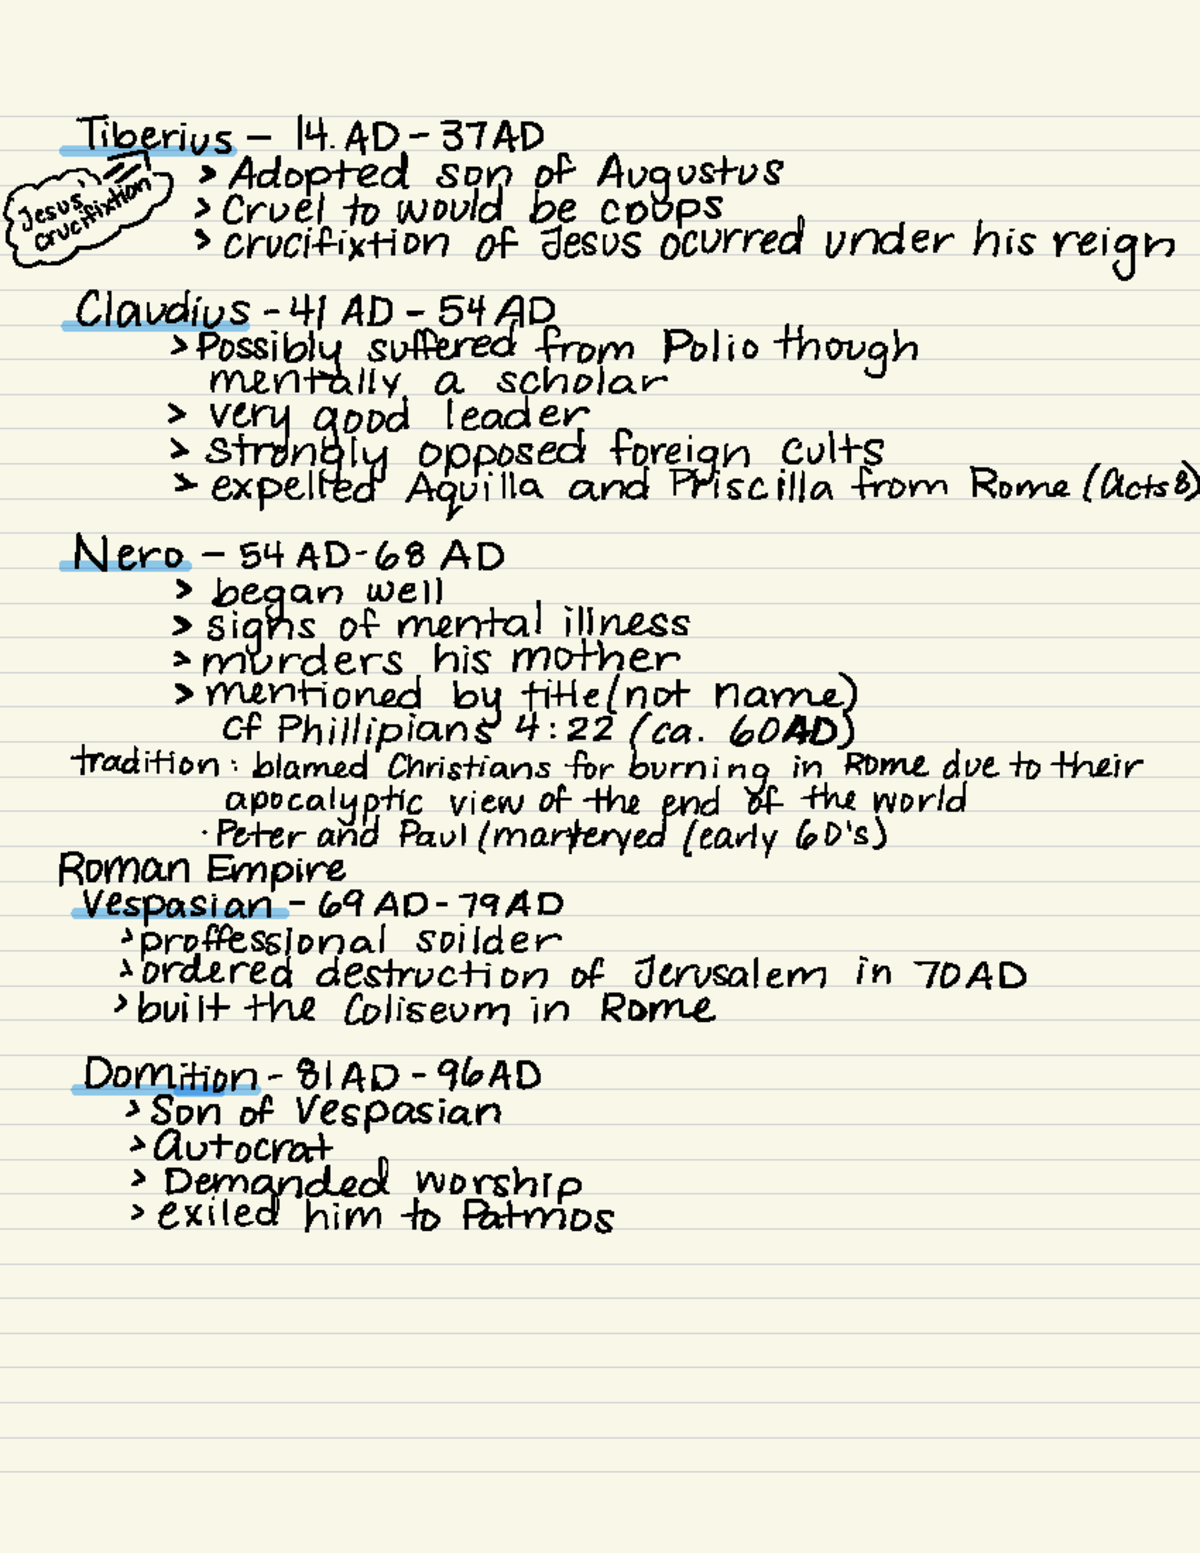 Tiberius – 14. AD – 37AD
> Adopted son of Augustus
Jesus'
crucifixtion
> Cruel to would be coups
> crucifixtion of Jesus ocurred under his reign
Claudius – 41 AD – 54 AD
> Possibly suffered from Polio though
mentally a scholar
> very good leader
> strongly opposed foreign cults
> expelled Aquilla and Priscilla from Rome (Acts 8)
Nero – 54 AD-68 AD
> began well
> signs of mental illness
> murders his mother
> mentioned by title (not name)
cf Phillipians 4:22 (ca. 60AD)
tradition: blamed Christians for burning in Rome due to their
apocalyptic view of the end of the world
· Peter and Paul (marteryed (early 60's)
Roman Empire
Vespasian – 69 AD- 79AD
> proffessional soilder
> ordered destruction of Jerusalem in 70AD
> built the Coliseum in Rome
Domition – 81AD – 96AD
> Son of Vespasian
> Autocrat
> Demanded worship
> exiled him to Patmos